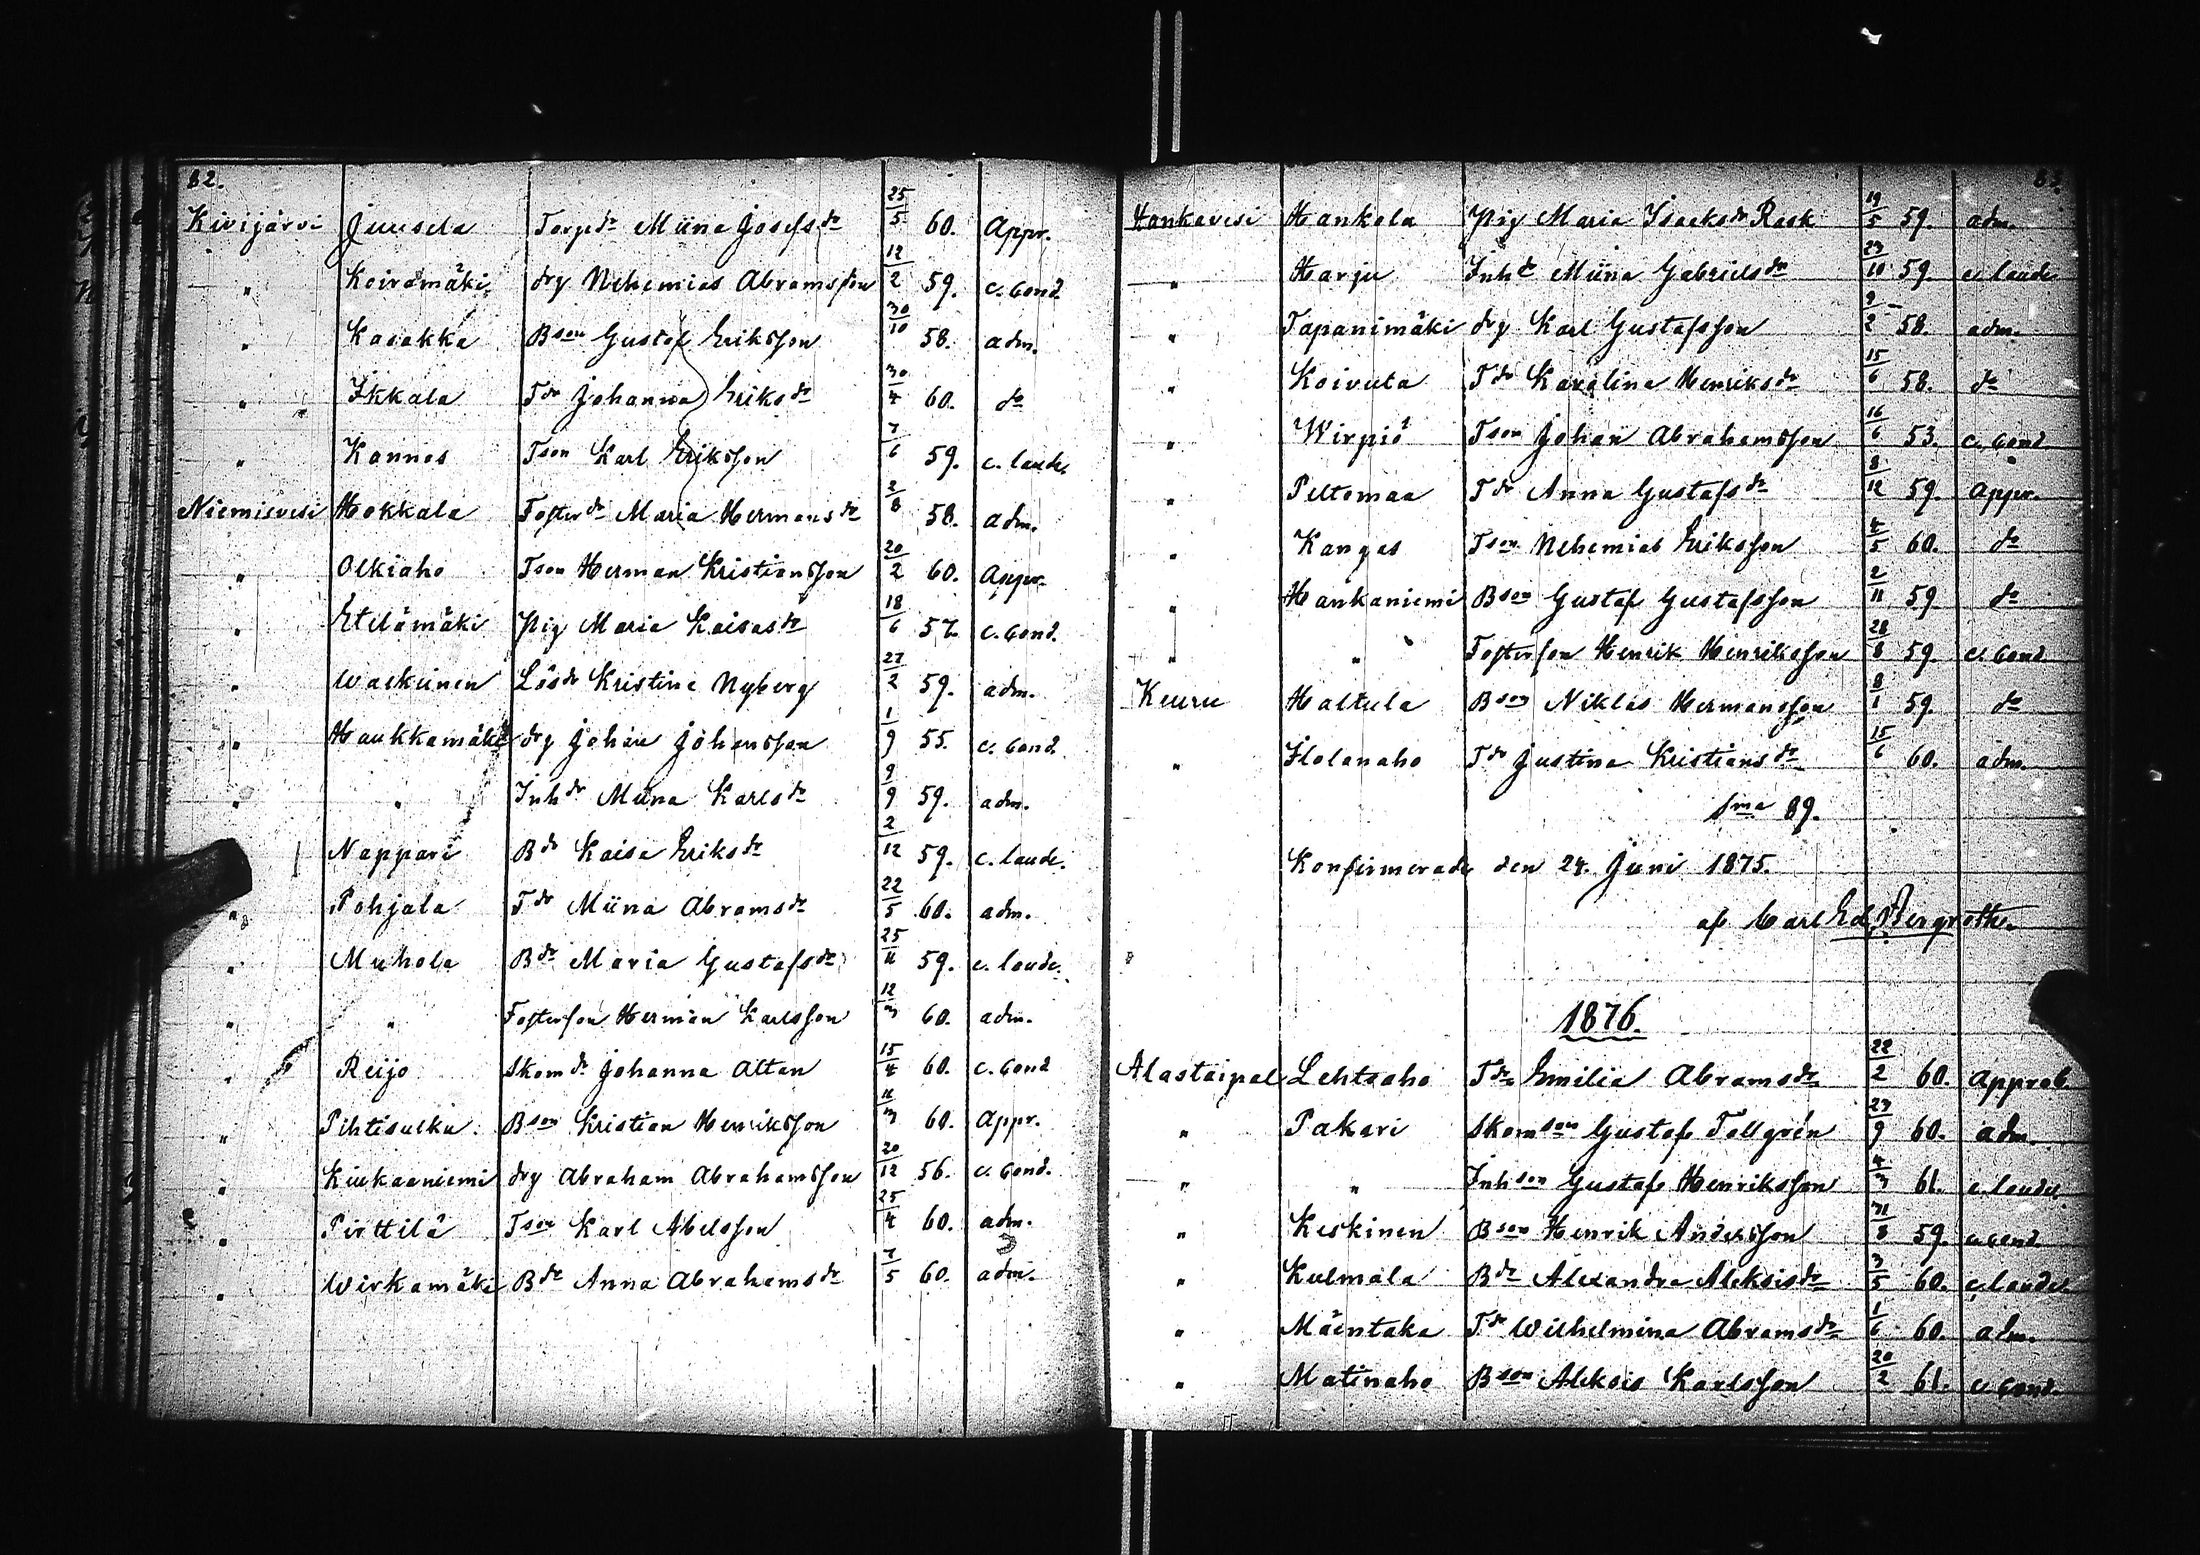 82.
Kivijärvi Juusela Torpdr Miina Josefsdr 25/5 60. Appr.
" Koiramäki drg Nehemias Abramsson 12/2 59. c. Cond
" Kasakka Bson Gustaf Eriksson 30/10 58. adm.
" Ikkala Tdr Johanna Eriksdr 30/4 60. do
" Kannos Tson Karl Eriksson 7/6 59. c. laude
Niemisvesi Hokkala Fosterdr Maria Hermansdr 2/8 58. adm.
" Olkiaho Tson Herman Kristiansson 20/2 60. Appr.
" Etelämäki Pig Maria Kaisasdr 18/6 57. c. Cond.
" Waikuinen Lösdr Kristina Nyberg 27/2 59. adm.
" Haukkamäki drg Johan Johansson 1/9 55. c. Cond.
" " Inhdr Miina Karlsdr 9/9 59. adm.
Nappari Bdr Kaisa Eriksdr 2/12 59. c. laude.
" Pohjala Tdr Miina Abramsdr 22/5 60. adm.
" Muhola Bdr Maria Gustafsdr 25/11 59. c. laude.
" " Fosterson Herman Karlsson 12/3 60. adm.
" Reijo Skomdr Johanna Altan 15/4 60. c. Cond
" Pihtisulku Bson Kristian Henriksson 11/3 60. Appr.
" Kiukaaniemi drg Abraham Abrahamsson 20/12 56. c. Cond.
" Pirttilä Tson Karl Abelsson 25/4 60. adm.
" Wirkamäki Bdr Anna Abrahamsdr 7/5 60. adm.
83.
Hankavesi Hankola Pig Maria Isaksdr Rask 19/5 59. adm.
" Harju Inhdr Miina Gabrielsdr 23/10 59 c. laude
" Tapanimäki drg Karl Gustafsson 9/2 58. adm.
" Koivula Tdr Karolina Henriksdr 15/6 58. do
" Wirpiö Tson Johan Abrahamsson 16/6 53. c. Cond.
" Peltomaa Tdr Anna Gustafsdr 8/12 59. Appr.
" Kangas Tson Nehemias Eriksson 4/5 60. do
" Hankaniemi Bson Gustaf Gustafsson 2/11 59 do
" " Fosterson Henrik Henriksson 28/8 59. c. Cond
Keuru Haltula Bson Niklas Hermansson 8/1 59. do
" Ilolanaho Tdr Justina Kristiansdr 15/6 60. adm.
Sma 89.
Konfirmerade den 24. Juni 1875.
af Carl Ed. Bergroth.
1876.
Alastaipal Lehtoaho Tdr Emilia Abramsdr 22/2 60. Approb
" Pakari Skomson Gustaf Tallgrén 23/9 60. adm.
" " Inhson Gustaf Henriksson 4/3 61. c. laude
" Keskinen Bson Henrik Andersson 31/8 59. c. cond.
" Kulmala Bdr Alexandra Aleksisdr 3/5 60. c. laude.
" Mäentaka Tdr Wilhelmina Abramsdr 1/6 60. adm.
" Matinaho Bson Aleksis Karlsson 20/2 61. c. Cond.